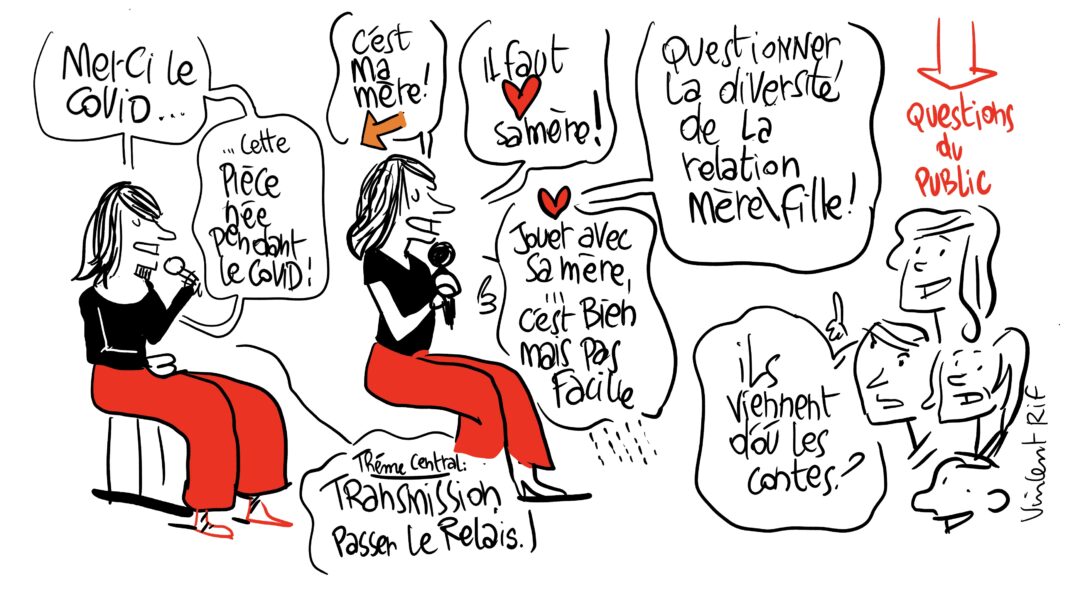 Merci le
COVID...
... Cette
Pièce
née
pendant
le COVID!
C'est
ma
mère!
il faut
sa mère!
Questionner
la diversité
de la
relation
mère\fille!
Jouer avec
sa mère,
...
c'est Bien
mais pas
Facile
Thème central:
Transmission,
passer le Relais.
Questions
du
PUBLIC
ils
viennent
d'où les
contes?
Vincent Rif